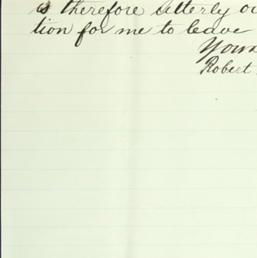 is therefore utterly ou
tion for me to leave
Your
Robert